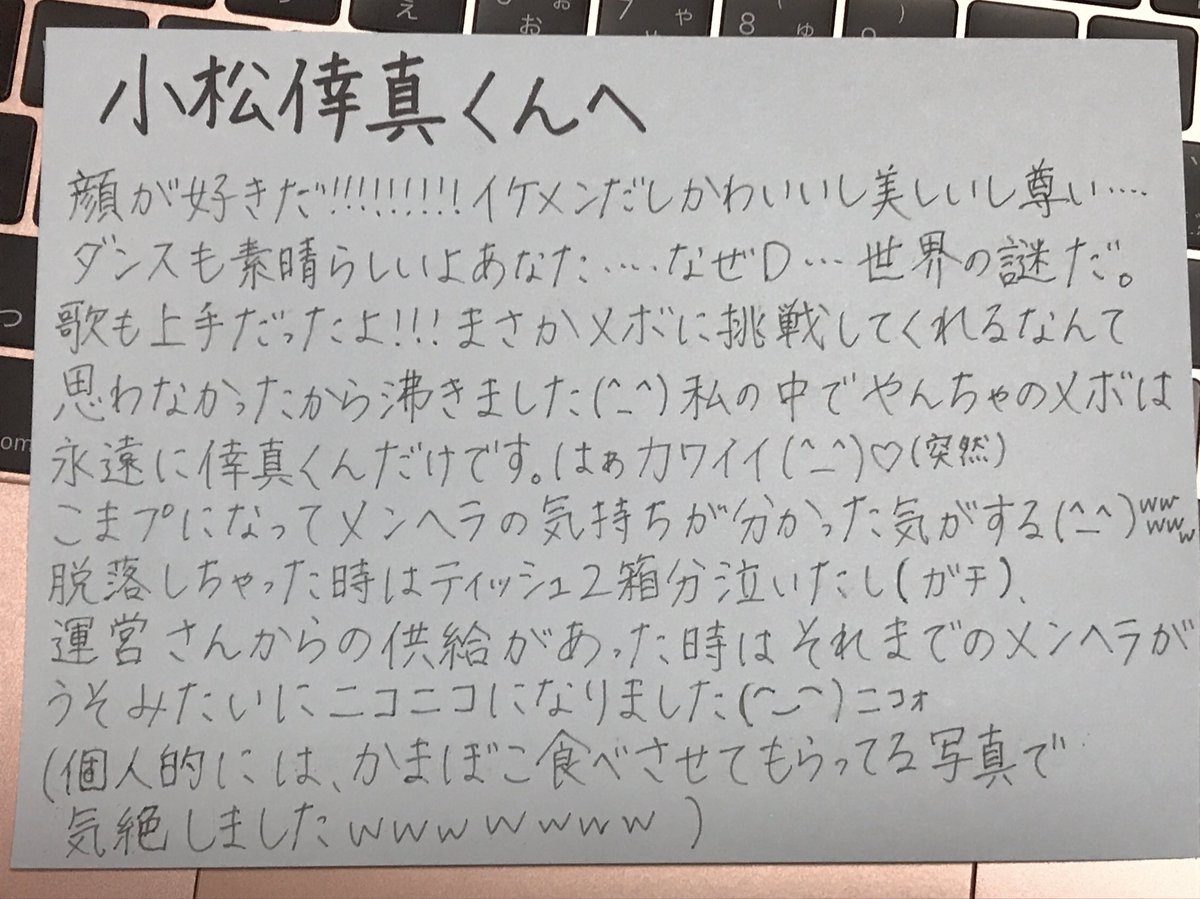 え
お
7
や
8
ゆ
)
つ
com
小松倖真くんへ
顔が好きだ!!!!!!!!!イケメンだしかわいいし美しいし尊い‥‥
ダンスも素晴らしいよあなた‥‥なぜD…世界の謎だ。
歌も上手だったよ!!!まさかメボに挑戦してくれるなんて
思わなかったから沸きました(^_^)私の中でやんちゃのメボは
永遠に倖真くんだけです。はぁカワイイ(^_^)♡(突然)
こまプになってメンヘラの気持ちが分かった気がする(^_^)wwwww
脱落しちゃった時はティッシュ2箱分泣いたし(ガチ)、
運営さんからの供給があった時はそれまでのメンヘラが
うそみたいにニコニコになりました(^_^)ニコォ
(個人的には、かまぼこ食べさせてもらってる写真で
気絶しましたwwwwwww)